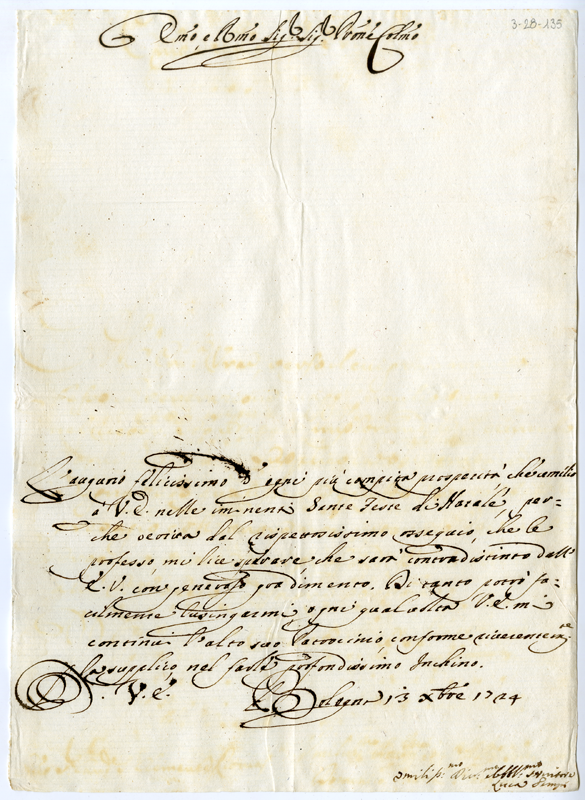 3-28-135
Emo, e Rmo Sig.r Sig.r Prone Colmo
L'augurio felicissimo d'ogni più compita prosperità che umilio
a V. E. nelle iminenti Sante Feste di Natale, per=
che deriva dal rispettosissimo ossequio, che le
professo, mi lice sperare che sarà contradistinto dall'
E. V. con generoso gradimento. Di tanto potrò fa=
cilmente lusingarmi, ogni qual volta V. E. mi
continui l'alto suo Patrocinio conforme riverentem.te
la supplico nel farle profondissimo Inchino.
V. E.
Bologna 13 Xbre 1724
Umilis.mo Div.mo
Luca